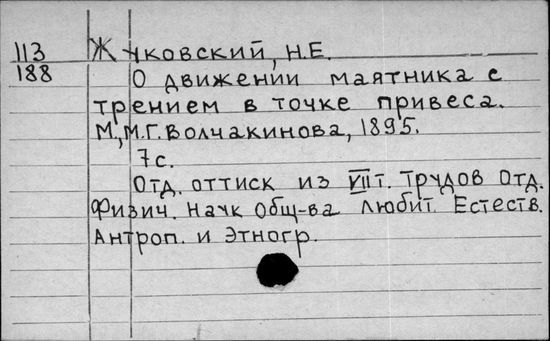 113 Жуковский, Н.Е.
188 О движении маятника с
трением в точке привеса.
М., М.Г. Волчакинова, 1895.
7с.
Отд. оттиск из VII т. Трудов Отд.
Физич. Наук Общ-ва Любит. Естеств.
Антроп. и Этногр.